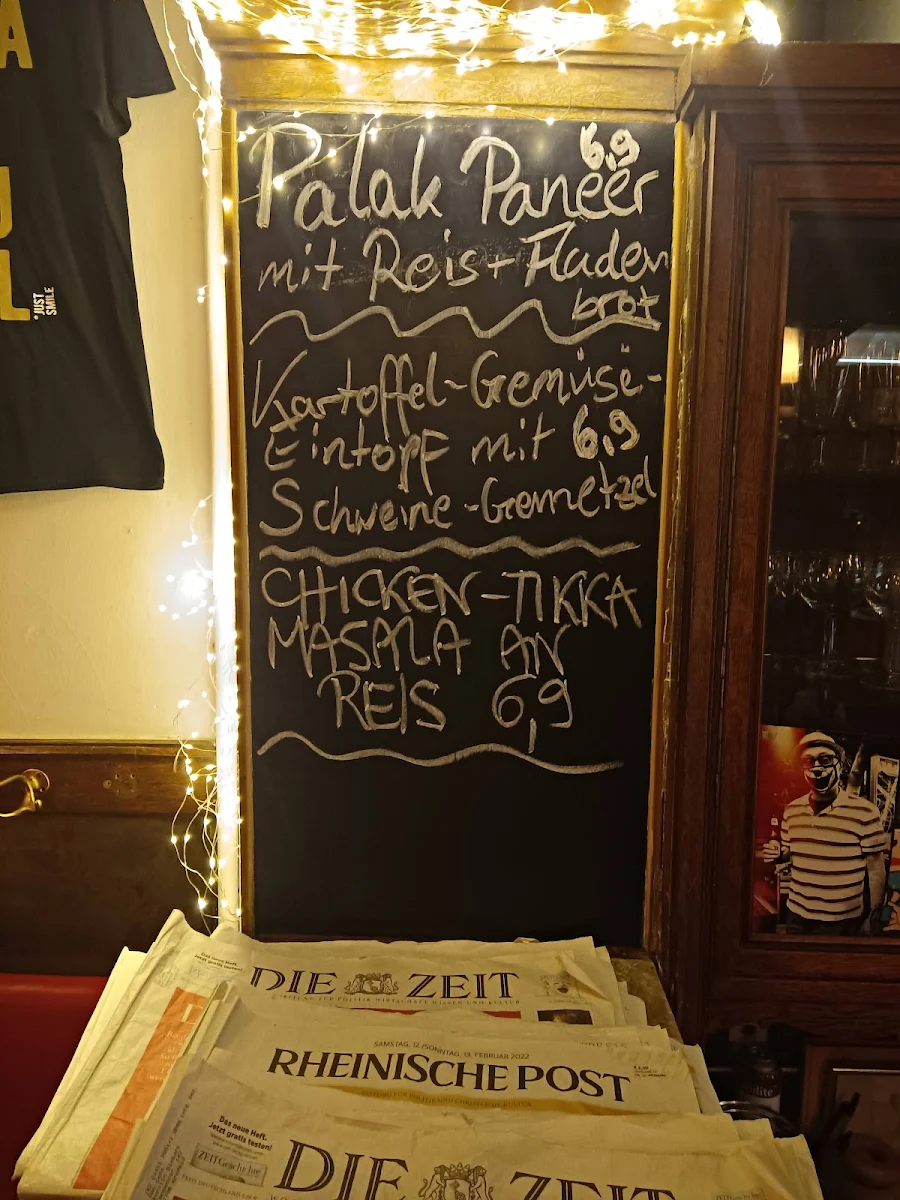 A
U
L
*JUST
SMILE
6,9
Palak Paneer
mit Reis + Fladen
brot
Kartoffel-Gemüse-
Eintopf mit 6,9
Schweine-Gemetzel
CHICKEN-TIKKA
MASALA AN
REIS 6,9
Das neue Heft.
Jetzt gratis testen!
DIE ZEIT
SAMSTAG, 12./SONNTAG, 13. FEBRUAR 2022
RHEINISCHE POST
ZEITUNG FÜR POLITIK UND CHRISTLICHE KULTUR
Das neue Heft.
Jetzt gratis testen!
ZEIT Geschichte
DIE ZEIT